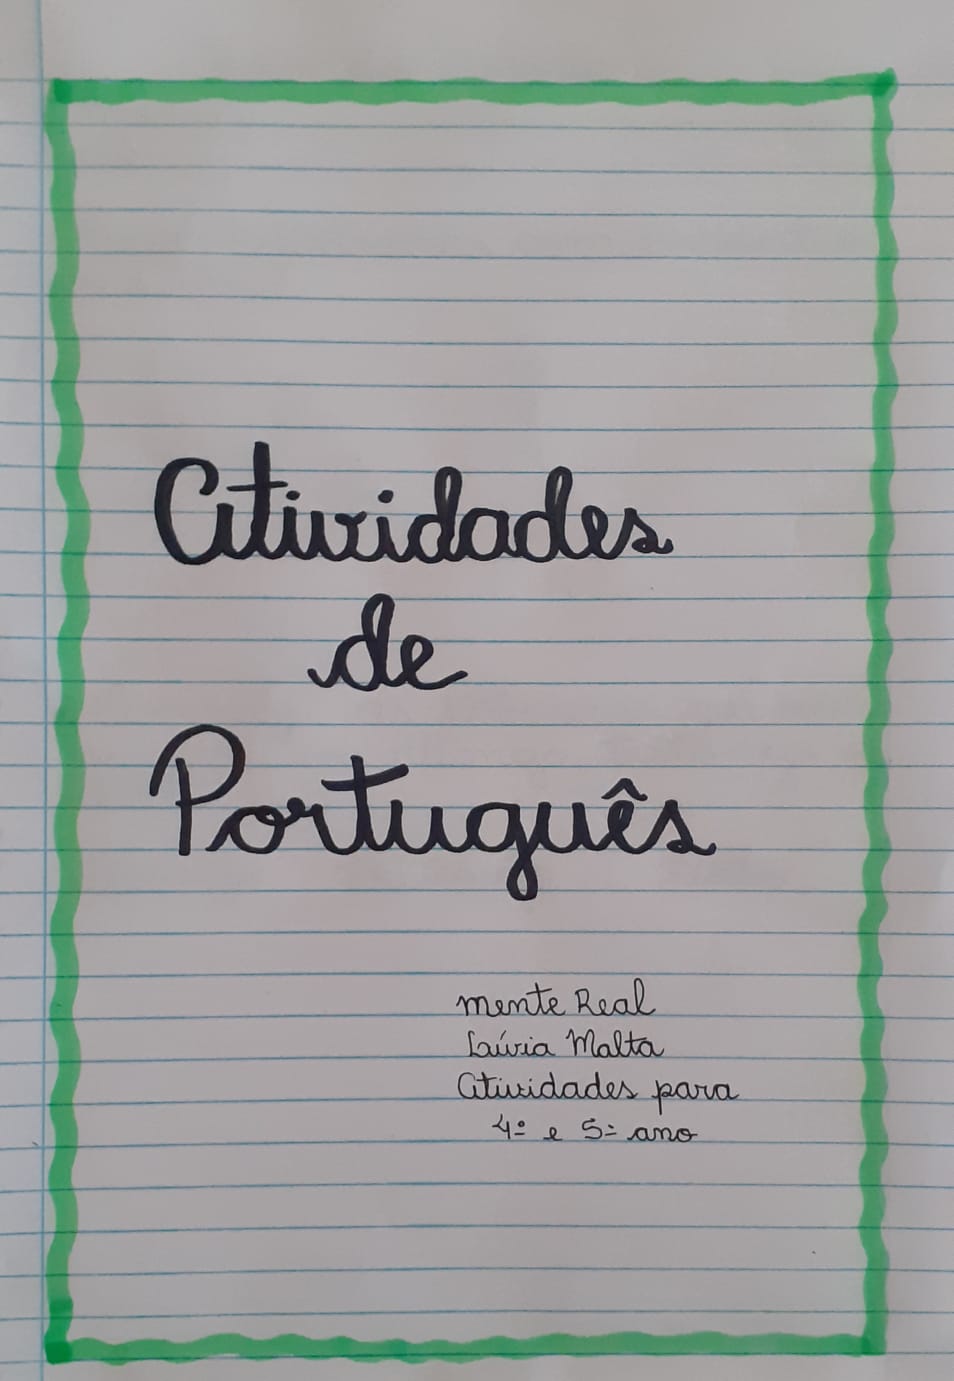 Atividades
de
Português
mente Real
Laívia Malta
Atividades para
4º e 5º ano